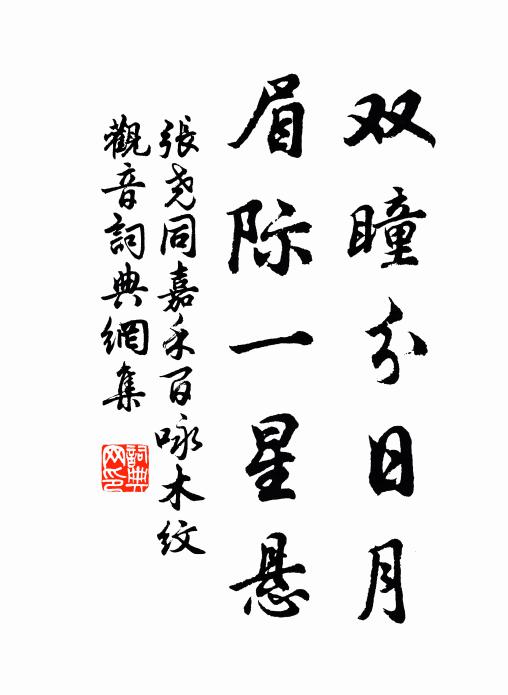 双瞳分日月
眉际一星悬
張尧同嘉禾百咏木紋
觀音詞典網集
詞典
网印